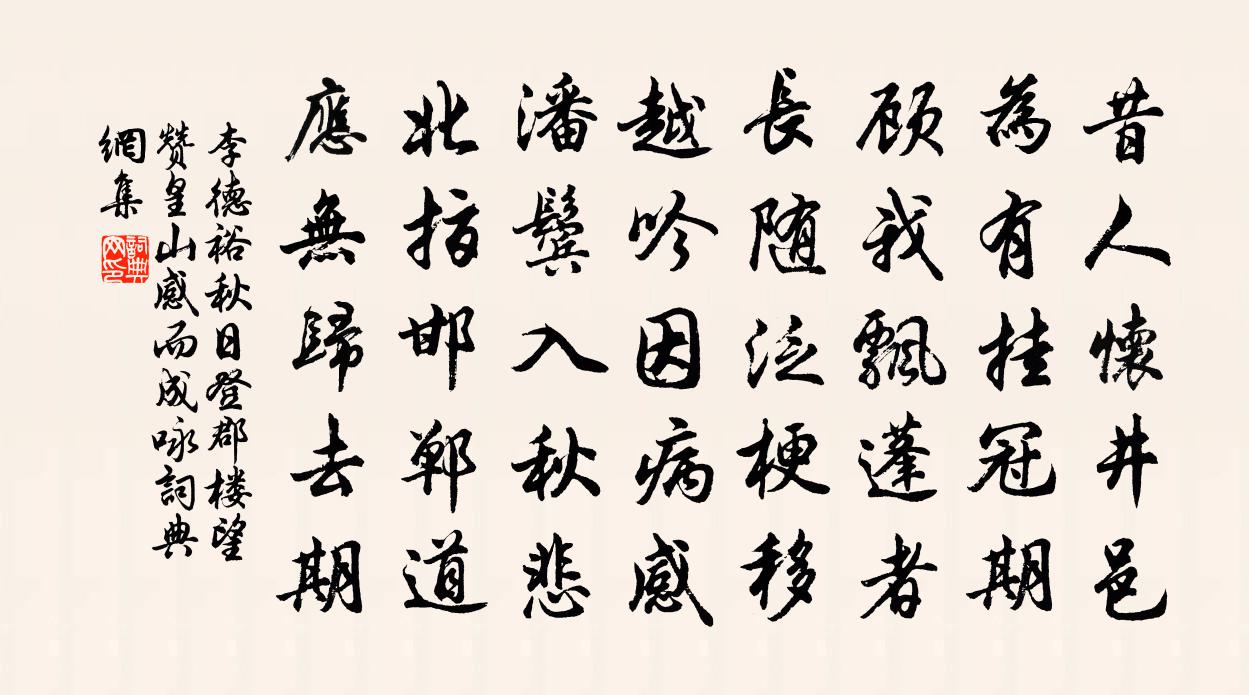 昔人懷井邑
為有挂冠期
顾我飄蓬者
長随泛梗移
越吟因病感
潘鬓入秋悲
北指邯鄲道
應無歸去期
李德裕秋日登郡楼望
赞皇山感而成咏詞典
網集
詞典网印